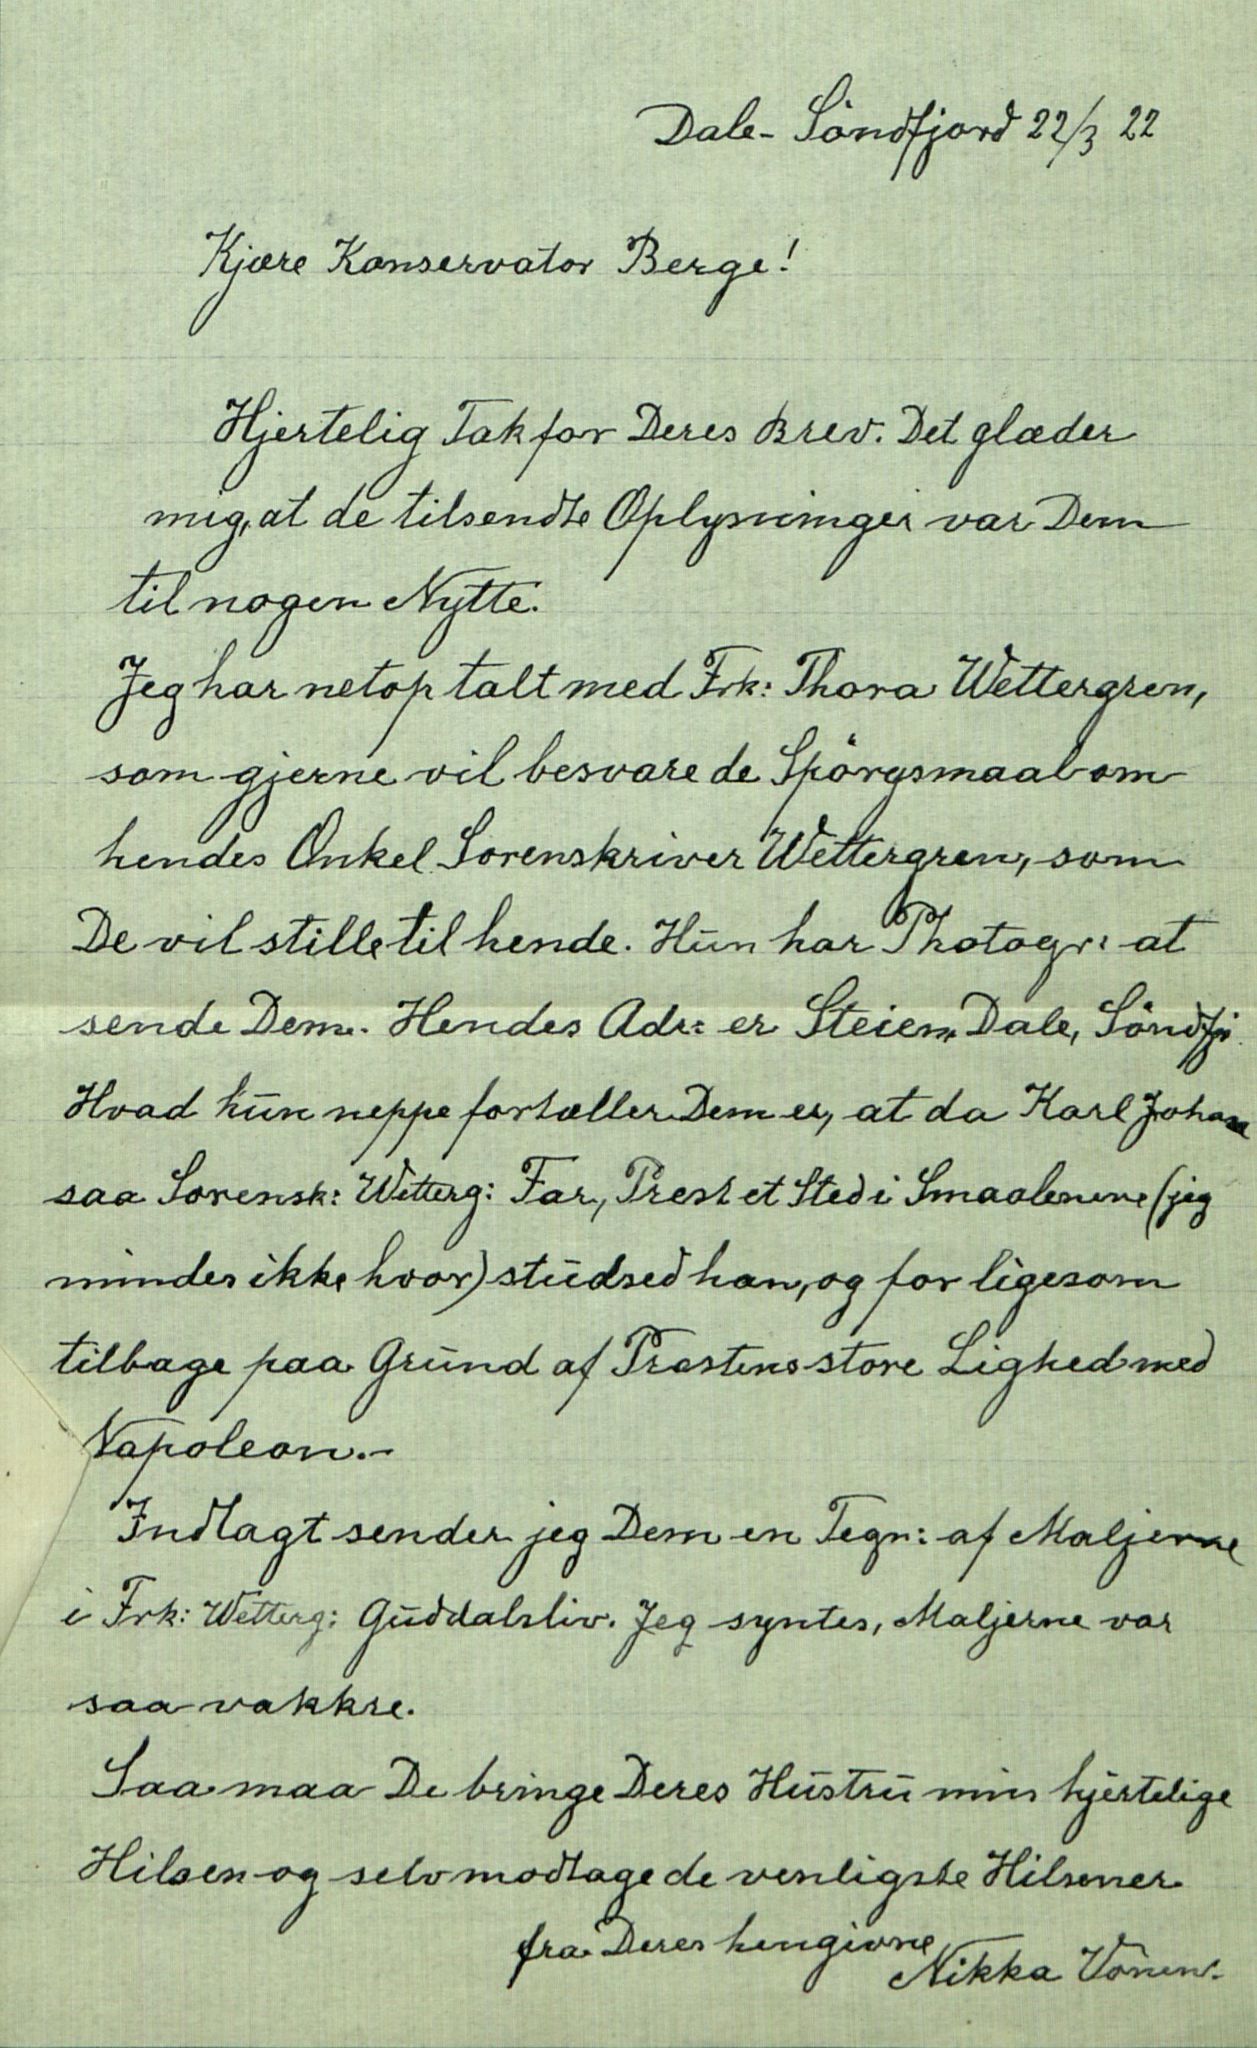 Dale- Söndfjord 22/3 22
Kjære Konservator Berge!
Hjertelig Tak for Deres Brev. Det glæder
mig, at de tilsendte Oplysninger var Dem
til nogen Nytte.
Jeg har netop talt med Frk: Thora Wettergren,
som gjerne vil besvare de Spörgsmaal om
hendes Onkel Sorenskriver Wettergren, som
De vil stille til hende. Hun har Photogr: at
sende Dem. Hendes Adr: er Steien, Dale, Söndfj.
Hvad hun neppe fortæller Dem er, at da Karl Johan
saa Sorensk: Wetterg: Far, Prest et Sted i Smaalenene (jeg
mindes ikke hvor) studsed han, og for ligesom
tilbage paa Grund af Præstens store Lighed med
Napoleon.-
Indlagt sender jeg Dem en Tegn: af Maljerne
i Frk: Wetterg: Guddalsliv. Jeg syntes, Maljerne var
saa vakkre.
Saa maa De bringe Deres Hustru min hjertelige
Hilsen og selv modtage de venligste Hilsener
fra Deres hengivne
Nikka Vonen.